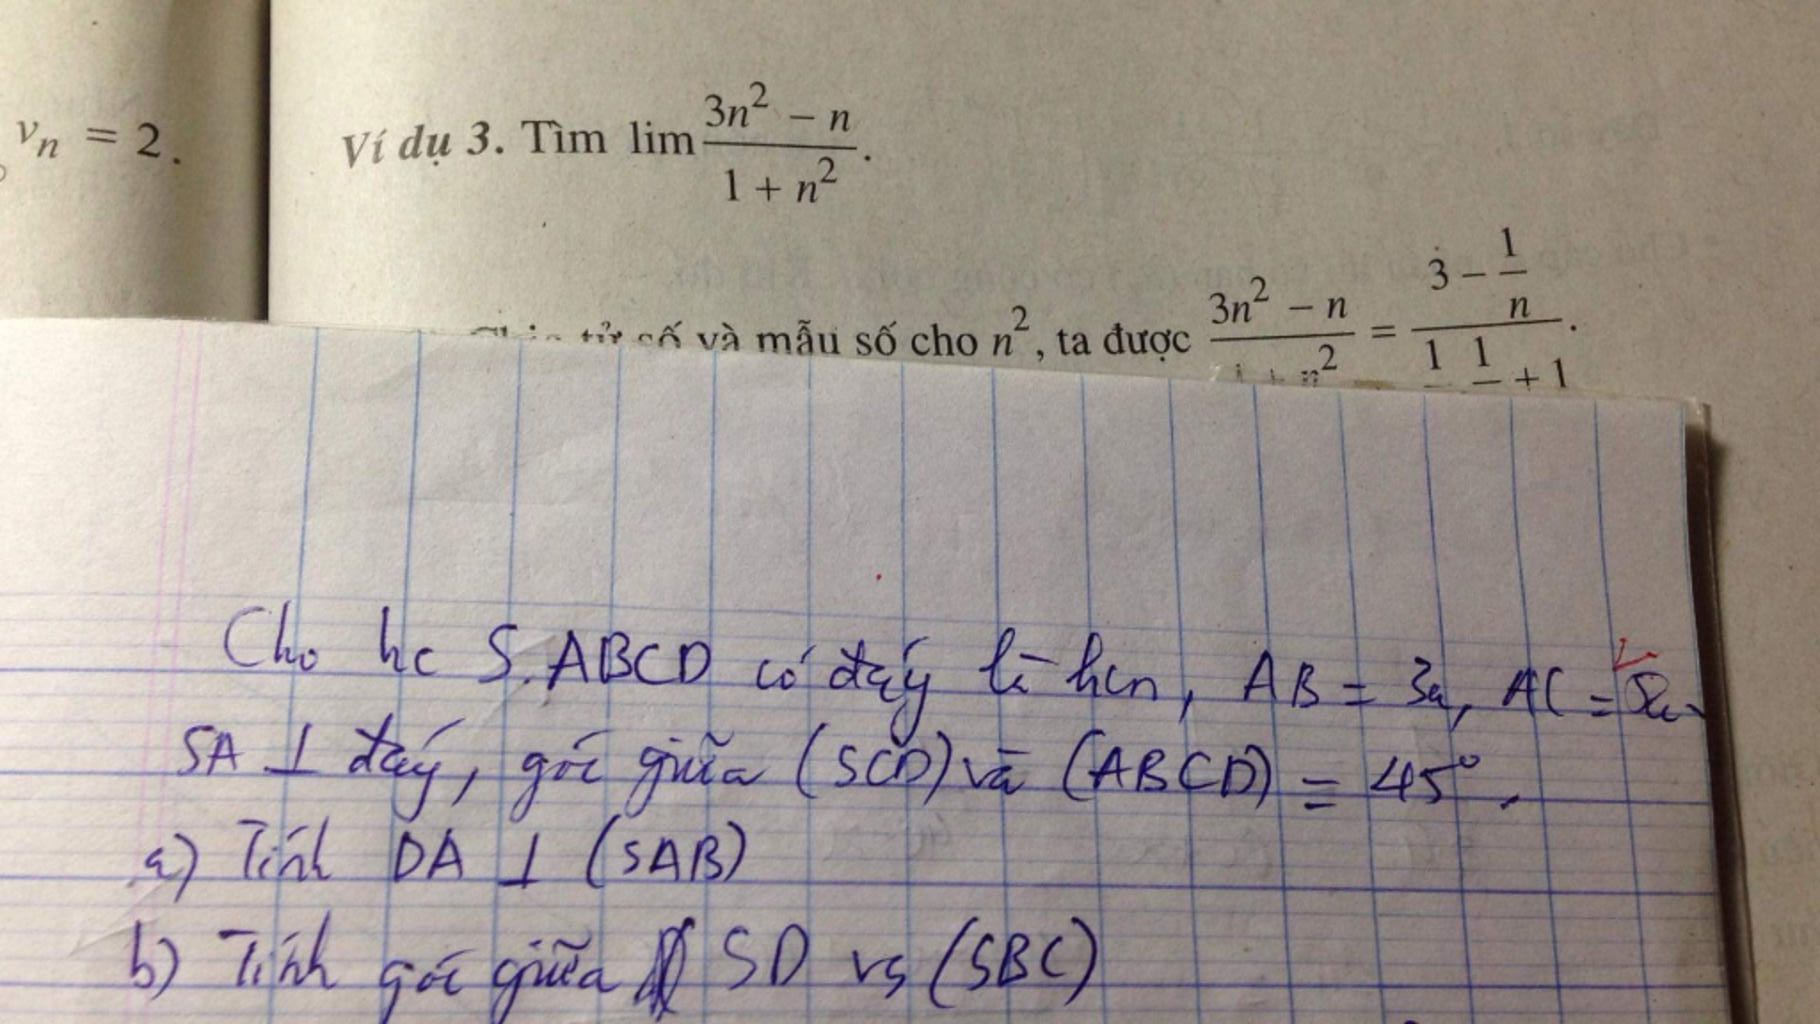 v_n = 2.
Ví dụ 3. Tìm lim (3n² − n)/(1 + n²).
tử số và mẫu số cho n², ta được (3n² − n)/(1 + n²) = (3 − 1/n)/( 1 + 1).
Cho hc S.ABCD có đáy là hcn, AB = 3a, AC = 5a.
SA ⊥ đáy, góc giữa (SCD) và (ABCD) = 45°.
a) Tính DA ⊥ (SAB)
b) Tính góc giữa SD vs (SBC)